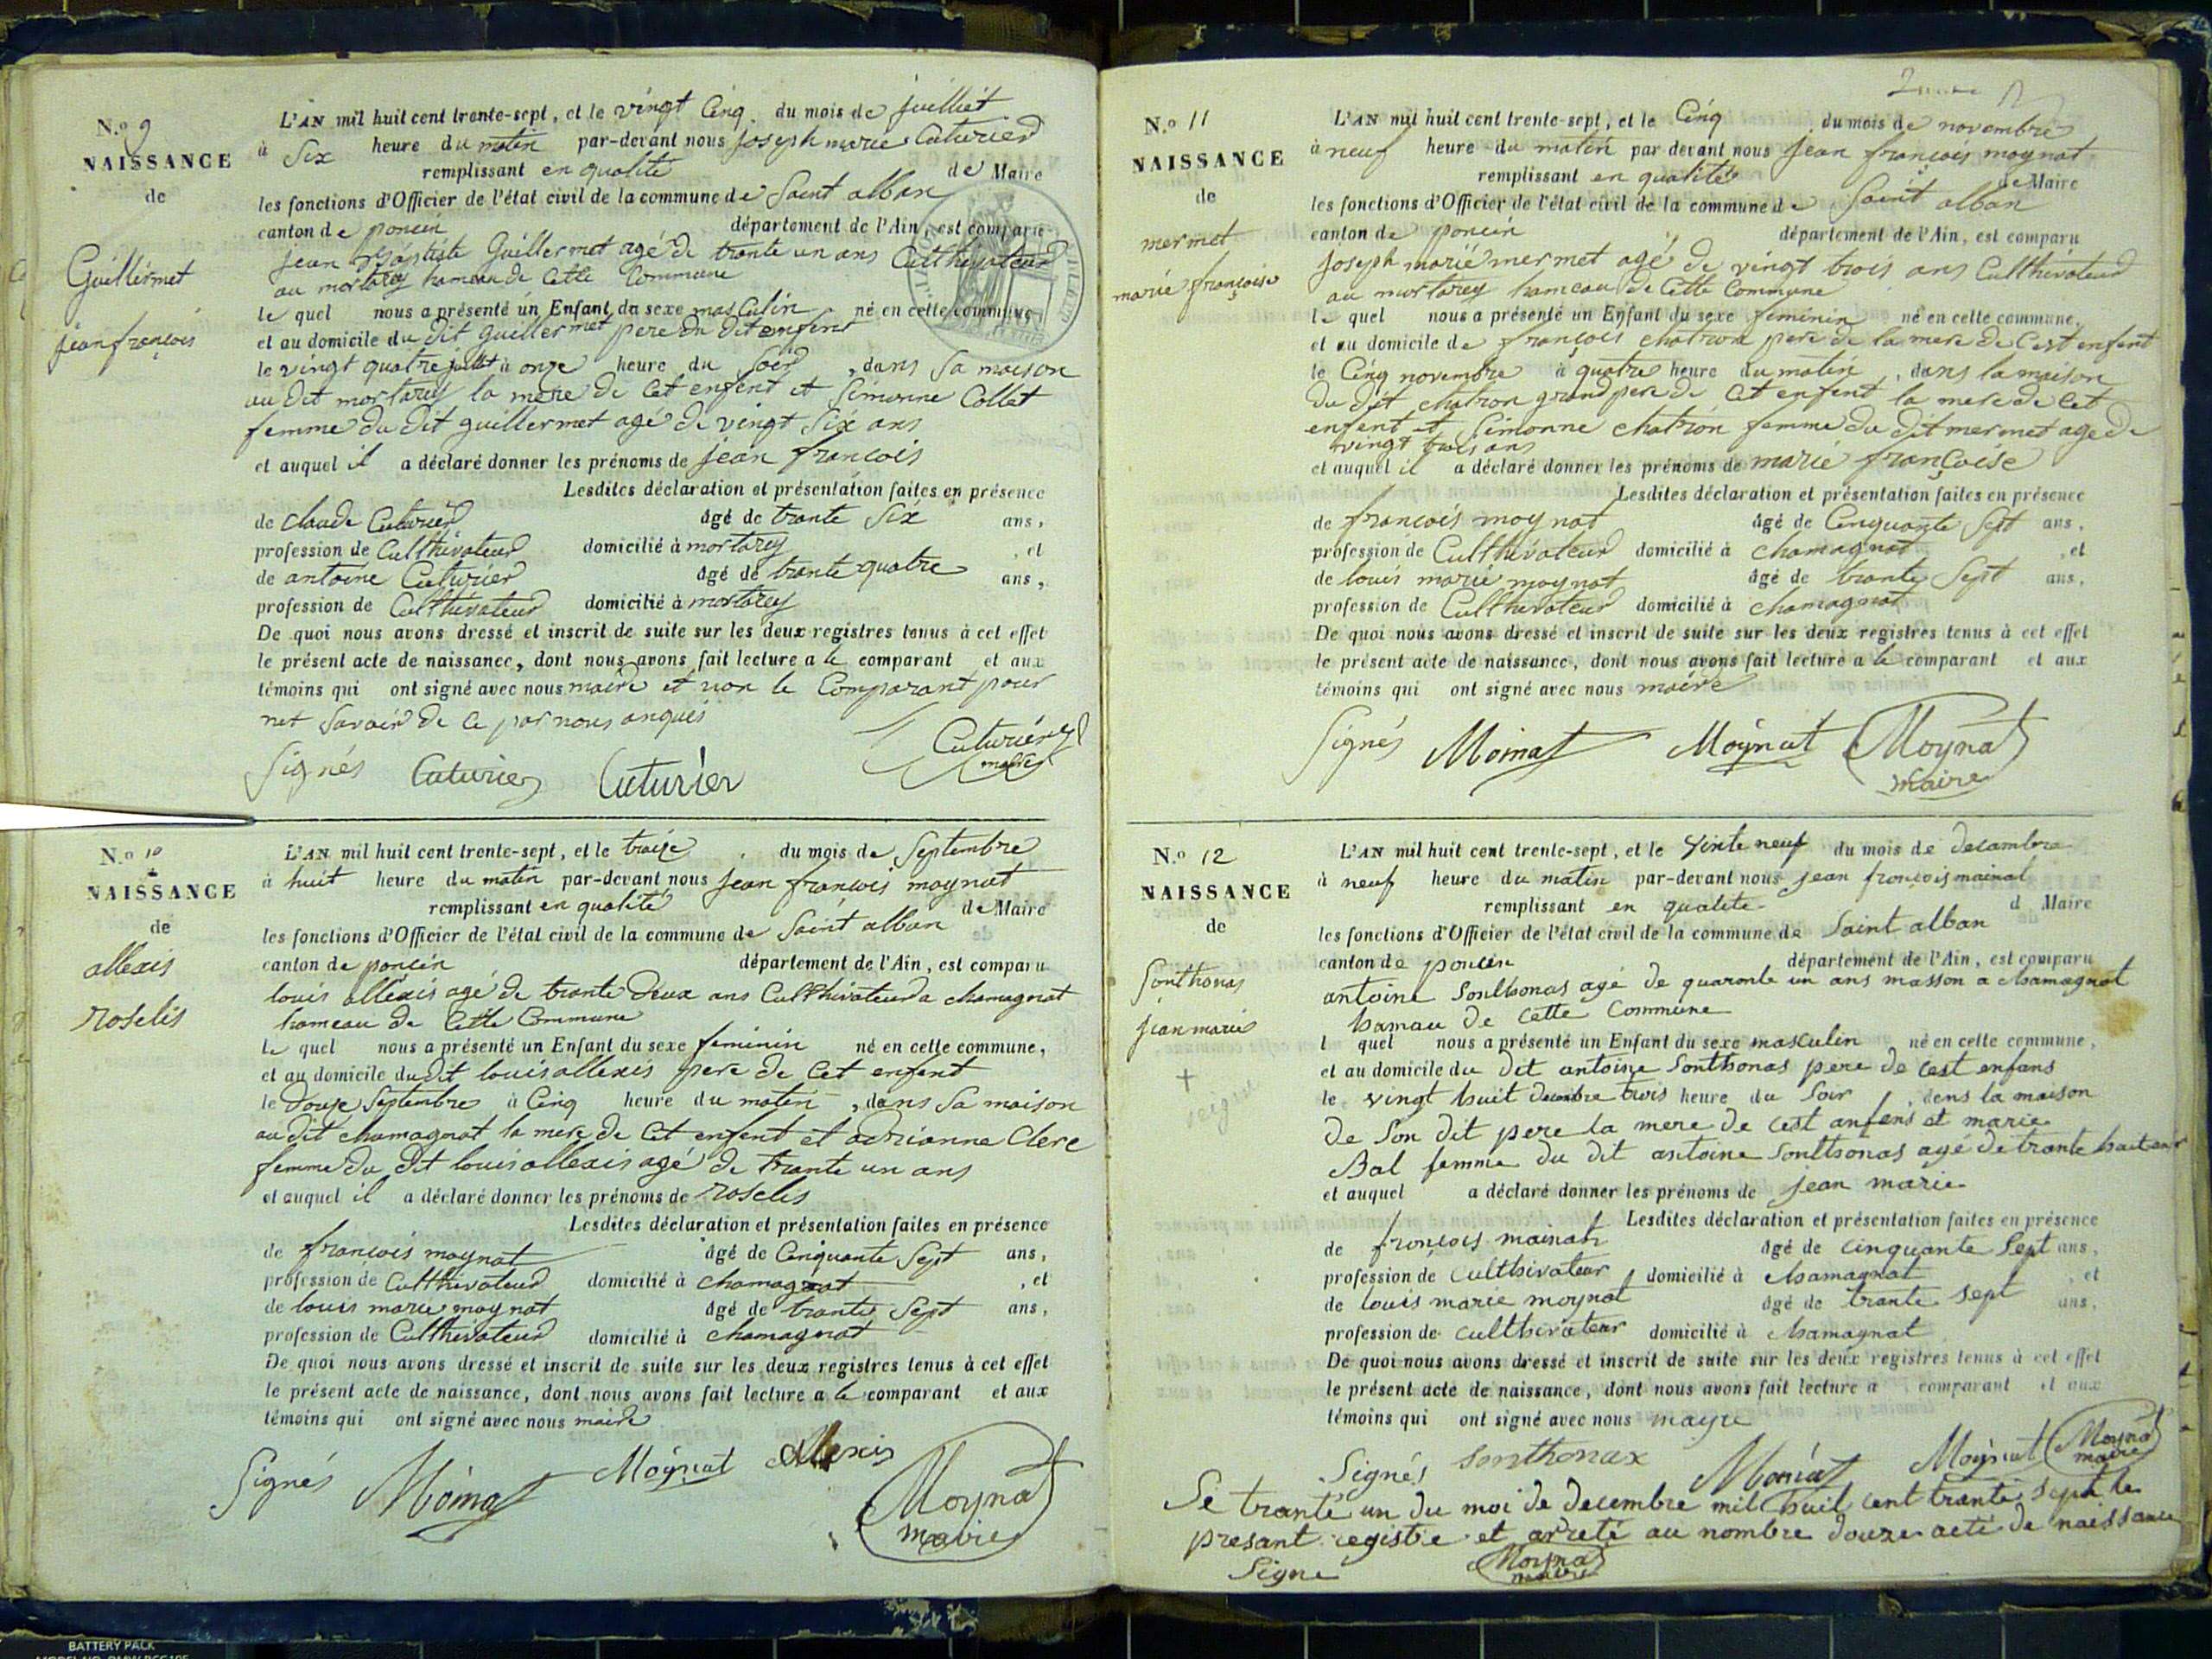 N.o 9
NAISSANCE
de
Guillermet
jean françois
L'AN mil huit cent trente-sept, et le vingt Cinq du mois de juilliet
à Six heure du matin par-devant nous joseph marie Cuturier
remplissant en qualité de Maire
les fonctions d'Officier de l'état civil de la commune de Saint alban
canton de poncin département de l'Ain, est comparu
jean Baptiste Guillermet agé de trante un ans Culthivateur
au mortarey hameau de Cette Commune
le quel nous a présenté un Enfant du sexe masCulin né en cette commune
et au domicile du dit guillermet pere du dit enfent
le vingt quatre juillet à onze heure du Soir, dans Sa maison
au dit mortarey la mere de Cet enfent et Simonne Collet
femme du dit guillermet agé de vingt Six ans
et auquel il a déclaré donner les prénoms de jean francois
Lesdites déclaration et présentation faites en présence
de claude Cuturier âgé de trante Six ans,
profession de Culthivateur domicilié à mortarey, et
de antoine Cuturier âgé de trante quatre ans,
profession de Culthivateur domicilié à mortarey
De quoi nous avons dressé et inscrit de suite sur les deux registres tenus à cet effet
le présent acte de naissance, dont nous avons fait lecture a le comparant et aux
témoins qui ont signé avec nous maire et non le Comparant pour
net Savoir de Ce par nous anquis
Signés Cuturier Cuturier Cuturier
maire
N.o 10
NAISSANCE
de
allexis
roselis
L'AN mil huit cent trente-sept, et le traize du mois de Septembre
à huit heure du matin par-devant nous jean francois moynat
remplissant en qualité de Maire
les fonctions d'Officier de l'état civil de la commune de Saint alban
canton de poncin département de l'Ain, est comparu
louis allexis agé de trante deux ans Culthivateur a chamagnat
hameau de Cette Commune
le quel nous a présenté un Enfant du sexe feminin né en cette commune,
et au domicile du dit louis allexis pere de Cet enfent
le douze Septembre à Cinq heure du matin, dans Sa maison
au dit chamagnat la mere de Cet enfent et adrianne Clerc
femme du dit louis allexis agé de trante un ans
et auquel il a déclaré donner les prénoms de roselis
Lesdites déclaration et présentation faites en présence
de francois moynat âgé de Cinquante Sept ans,
profession de Culthivateur domicilié à chamagnat, et
de louis marie moynat âgé de trante Sept ans,
profession de Culthivateur domicilié à chamagnat
De quoi nous avons dressé et inscrit de suite sur les deux registres tenus à cet effet
le présent acte de naissance, dont nous avons fait lecture a le comparant et aux
témoins qui ont signé avec nous maire
Signés Moinat Moynat Allexis Moynat
maire
N.o 11
NAISSANCE
de
mermet
marie françoise
L'AN mil huit cent trente-sept, et le Cinq du mois de novembre
à neuf heure du matin par devant nous jean françois moynat
remplissant en qualité de Maire
les fonctions d'Officier de l'état civil de la commune de Saint alban
canton de poncin département de l'Ain, est comparu
joseph marie mermet agé de vingt trois ans Culthivateur
au mortarey hameau de Cette Commune
le quel nous a présenté un Enfant du sexe feminin né en cette commune,
et au domicile de françois chatron pere de la mere de Cest enfent
le Cinq novembre à quatre heure du matin, dans la maison
du dit chatron grand pere de Cet enfent la mere de Cet
enfent et Simonne chatron femme du dit mermet age de
vingt trois ans
et auquel il a déclaré donner les prénoms de marie françoise
Lesdites déclaration et présentation faites en présence
de françois moynat âgé de Cinquante Sept ans,
profession de Culthivateur domicilié à chamagnat, et
de louis marie moynat âgé de trante Sept ans,
profession de Culthivateur domicilié à chamagnat
De quoi nous avons dressé et inscrit de suite sur les deux registres tenus à cet effet
le présent acte de naissance, dont nous avons fait lecture a le comparant et aux
témoins qui ont signé avec nous maire
Signés Moinat Moynat Moynat
maire
N.o 12
NAISSANCE
de
Sonthonas
jean marie
L'AN mil huit cent trente-sept, et le vinte neuf du mois de decambre
à neuf heure du matin par-devant nous jean françois mainat
remplissant en qualite d Maire
les fonctions d'Officier de l'état civil de la commune de Saint alban
canton de poncin département de l'Ain, est comparu
antoine Sonthonas agé de quaronte un ans masson a chamagnat
hamau de cette Commune
l quel nous a présenté un Enfant du sexe masculin né en cette commune,
et au domicile du dit antoine Sonthonas pere de cest enfans
le vingt huit decembre trois heure du Soir, dens la maison
de Son dit pere la mere de cest anfens et marie
Bal femme du dit antoine Sonthonas agé de trante huit ans
et auquel a déclaré donner les prénoms de jean marie
Lesdites déclaration et présentation faites en présence
de françois mainat âgé de cinquante Sept ans,
profession de culthivateur domicilié à chamagnat, et
de louis marie moynat âgé de trante sept ans,
profession de culthivateur domicilié à chamagnat
De quoi nous avons dressé et inscrit de suite sur les deux registres tenus à cet effet
le présent acte de naissance, dont nous avons fait lecture a comparant et aux
témoins qui ont signé avec nous mayre
Signés Sonthonax Moinat Moynat Moynat
maire
Le tranté un du moi de decembre mil huit cent trante sept le
presant registre et arreté au nombre douze acte de naissance
Signe Moynat
maire
BATTERY PACK